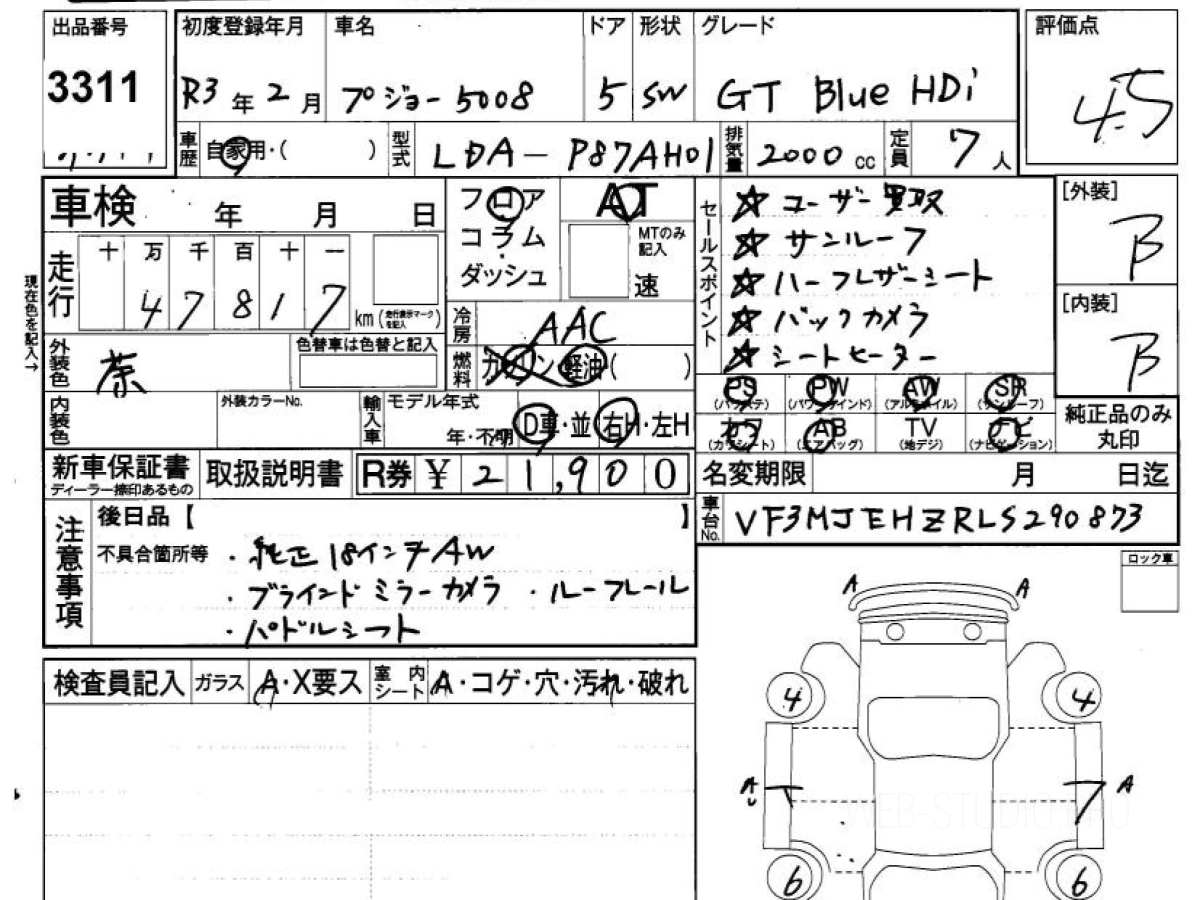 出品番号 初度登録年月 車名 ドア 形状 グレード 評価点
3311 R3年2月 プジョー5008 5 SW GT Blue HDi 4.5
車歴 自家用・( ) 型式 LDA-P87AH01 排気量 2000cc 定員 7人
車検 年 月 日
フロア
コラム
ダッシュ
AT
MTのみ記入
速
走行 十 万 千 百 十 一
4 7 8 1 7 km(走行表示マークを記入)
現在色を記入→
外装色 茶
色替車は色替と記入
冷房 AAC
燃料 ガソリン 軽油( )
内装色
外装カラーNo.
輸入車 モデル年式
年・不明 D車・並 右H・左H
セールスポイント
☆ ユーザー買取
☆ サンルーフ
☆ ハーフレザーシート
☆ バックカメラ
☆ シートヒーター
PS PW AW SR
(パワステ) (パワーウインド) (アルミホイル) (サンルーフ)
カワ AB TV ナビ
(カワシート) (エアバッグ) (地デジ) (ナビゲーション)
[外装]
B
[内装]
B
純正品のみ
丸印
新車保証書 取扱説明書 R券 ¥ 21,900
ディーラー捺印あるもの
名変期限 月 日迄
車台No. VF3MJEHZRLS290873
注意事項
後日品【 】
不具合箇所等 ・純正18インチAW
・ブラインドミラーカメラ ・ルーフレール
・パドルシフト
ロック車
検査員記入 ガラス A・X要ス 室内シート A・コゲ・穴・汚れ・破れ
A A
4 4
A A
WEB-STUDIO.PRO
6 6